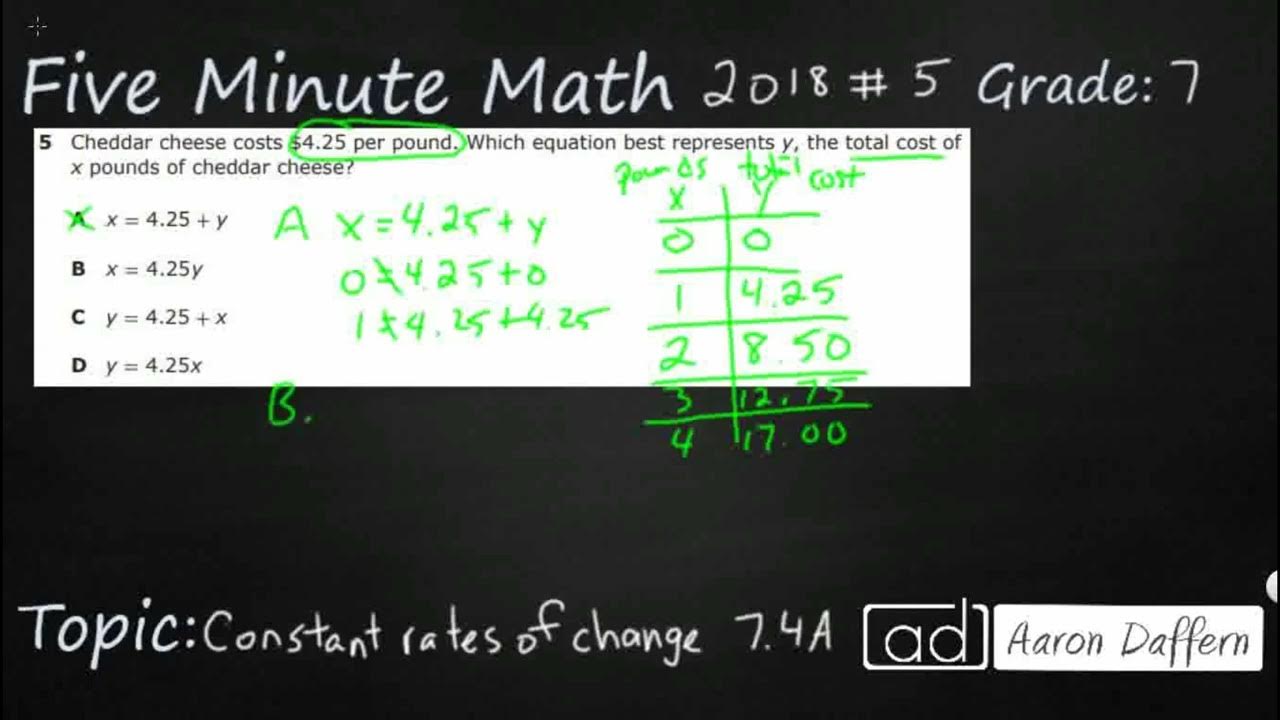 Five Minute Math 2018 # 5 Grade: 7
5 Cheddar cheese costs $4.25 per pound. Which equation best represents y, the total cost of
x pounds of cheddar cheese?
A x = 4.25 + y
B x = 4.25y
C y = 4.25 + x
D y = 4.25x
A x = 4.25 + y
0 ≠ 4.25 + 0
1 ≠ 4.25 + 4.25
B.
pounds total cost
x y
0 0
1 4.25
2 8.50
3 12.75
4 17.00
Topic: Constant rates of change 7.4A
ad Aaron Daffern